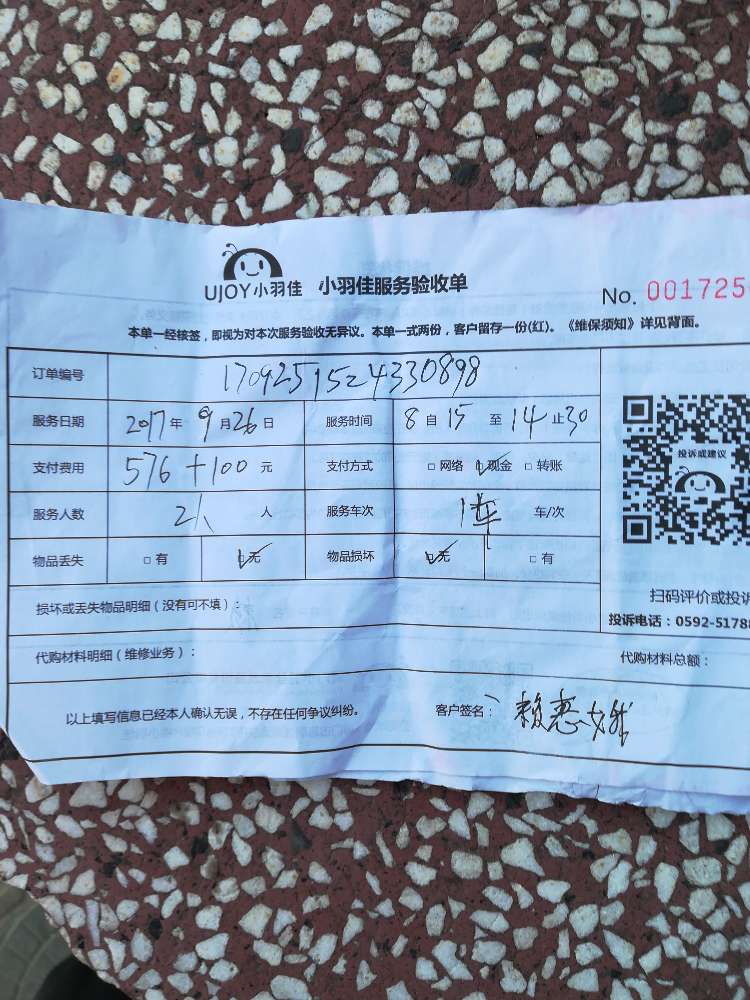 UJOY小羽佳 小羽佳服务验收单 No. 001725
本单一经核签，即视为对本次服务验收无异议。本单一式两份，客户留存一份(红)。《维保须知》详见背面。
订单编号 1709251524330898
服务日期 2017年 9月26日 服务时间 8自15至14止30
支付费用 576+100元 支付方式 □网络 ☑现金 □转账
服务人数 2人 人 服务车次 1车 车/次
物品丢失 □有 ☑无 物品损坏 ☑无 □有
投诉或建议
扫码评价或投诉
损坏或丢失物品明细（没有可不填）：
投诉电话：0592-5178
代购材料明细（维修业务）： 代购材料总额：
以上填写信息已经本人确认无误，不存在任何争议纠纷。 客户签名：